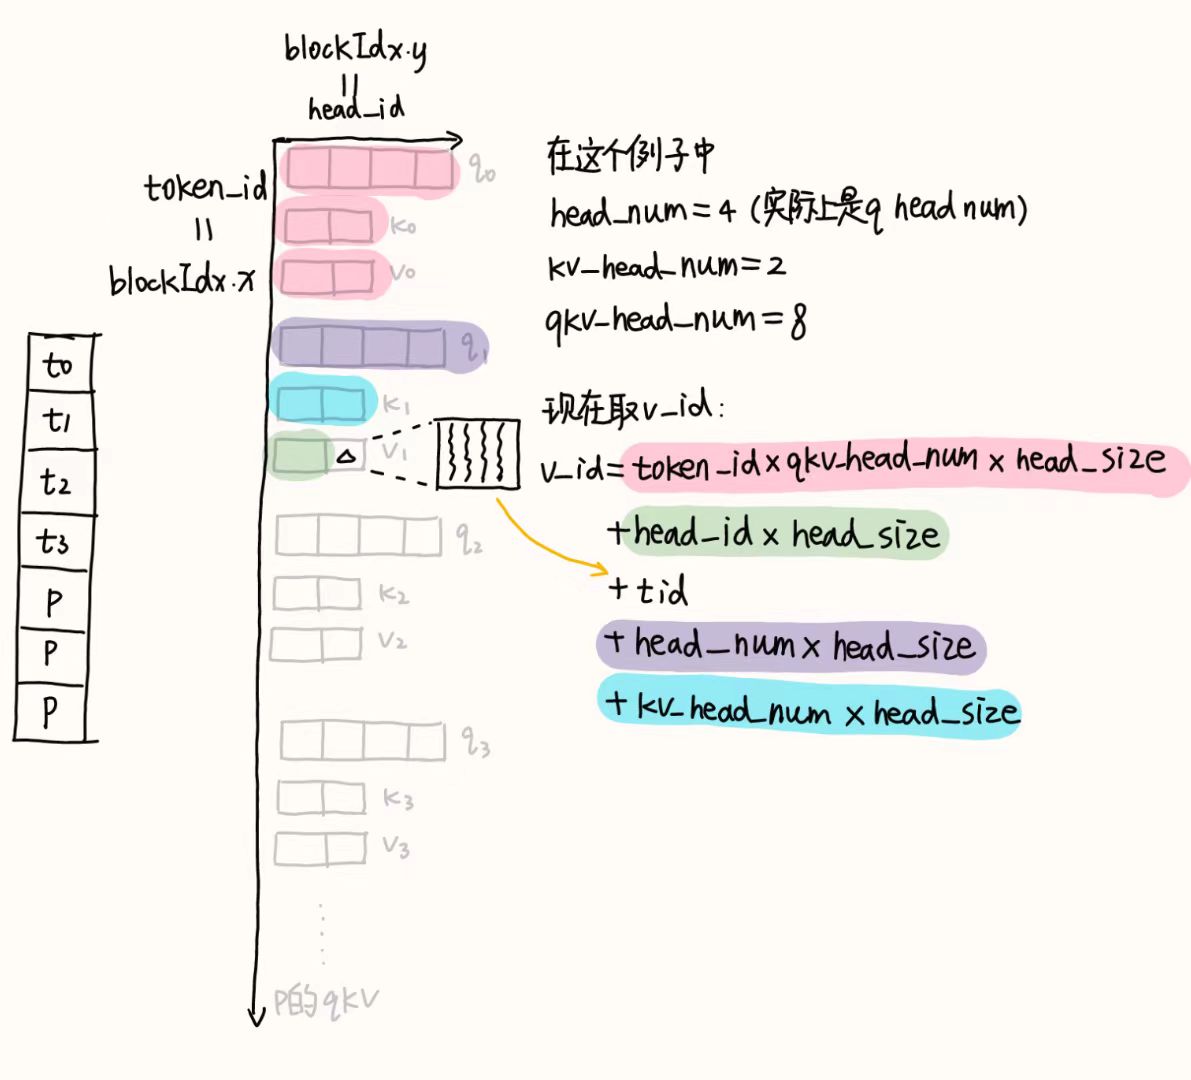 blockIdx.y
=
head_id
token_id
=
blockIdx.x
t0
t1
t2
t3
P
P
P
q0
k0
v0
q1
k1
v1
q2
k2
v2
q3
k3
v3
P的qkv
在这个例子中
head_num=4 (实际上是q head num)
kv_head_num=2
qkv_head_num=8
现在取v_id:
v_id=token_id×qkv_head_num×head_size
+head_id×head_size
+tid
+head_num×head_size
+kv_head_num×head_size